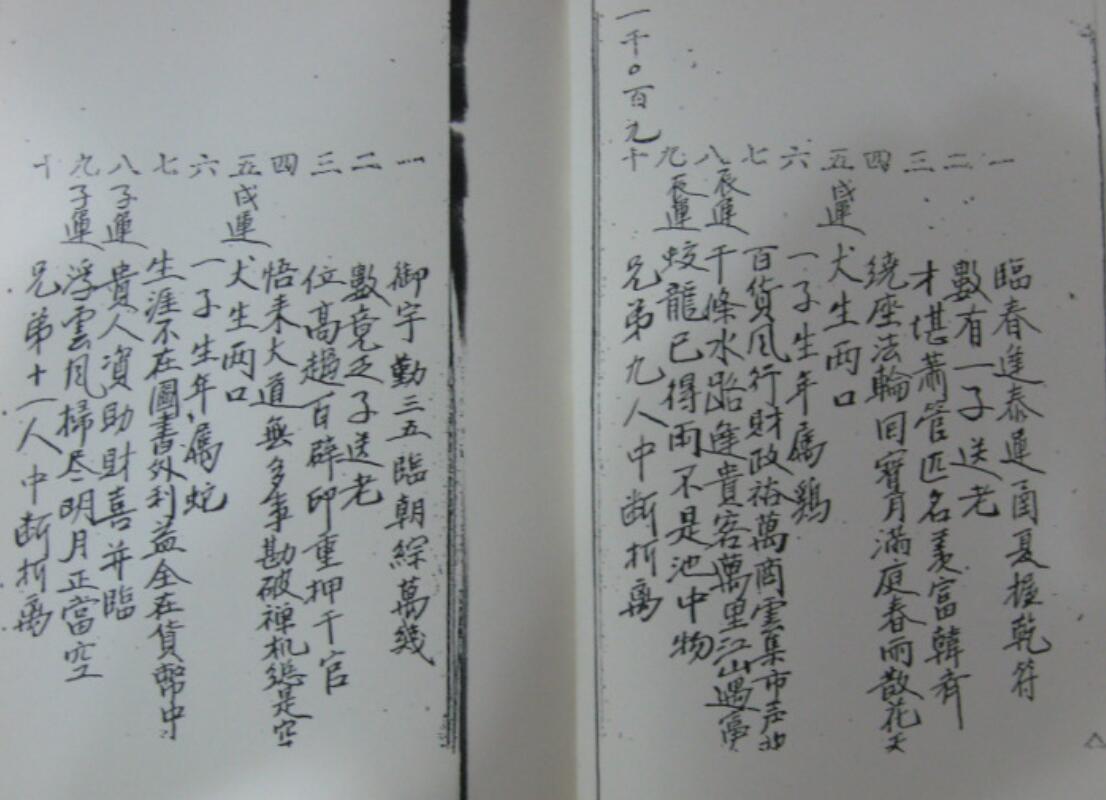 一 臨春逢泰運圖夏握乾符
二 數有一子送老
三 才堪蕭管匹名美富韓齊
四 繞座法輪回寶月滿庭春雨散花天
五 戌運 犬生両口
六 一子生年属鷄
七 百貨風行財政裕萬商雲集市声
八 辰運 千條水路逢貴客萬里江山遇
九 辰運 蛟龍已得雨不是池中物
十 兄弟九人中断折
一千〇百九
一 御宇勤三五臨朝綜萬幾
二 數竟乏子送老
三 位高趨百辟印重押千官
四 悟耒大道無多事勘破禅机総是空
五 戌運 犬生両口
六 一子生年属蛇
七 生涯不在圖書外利益全在貨幣中
八 子運 貴人資助財喜并臨
九 子運 浮雲風掃尽明月正當空
十 兄弟十一人中断折